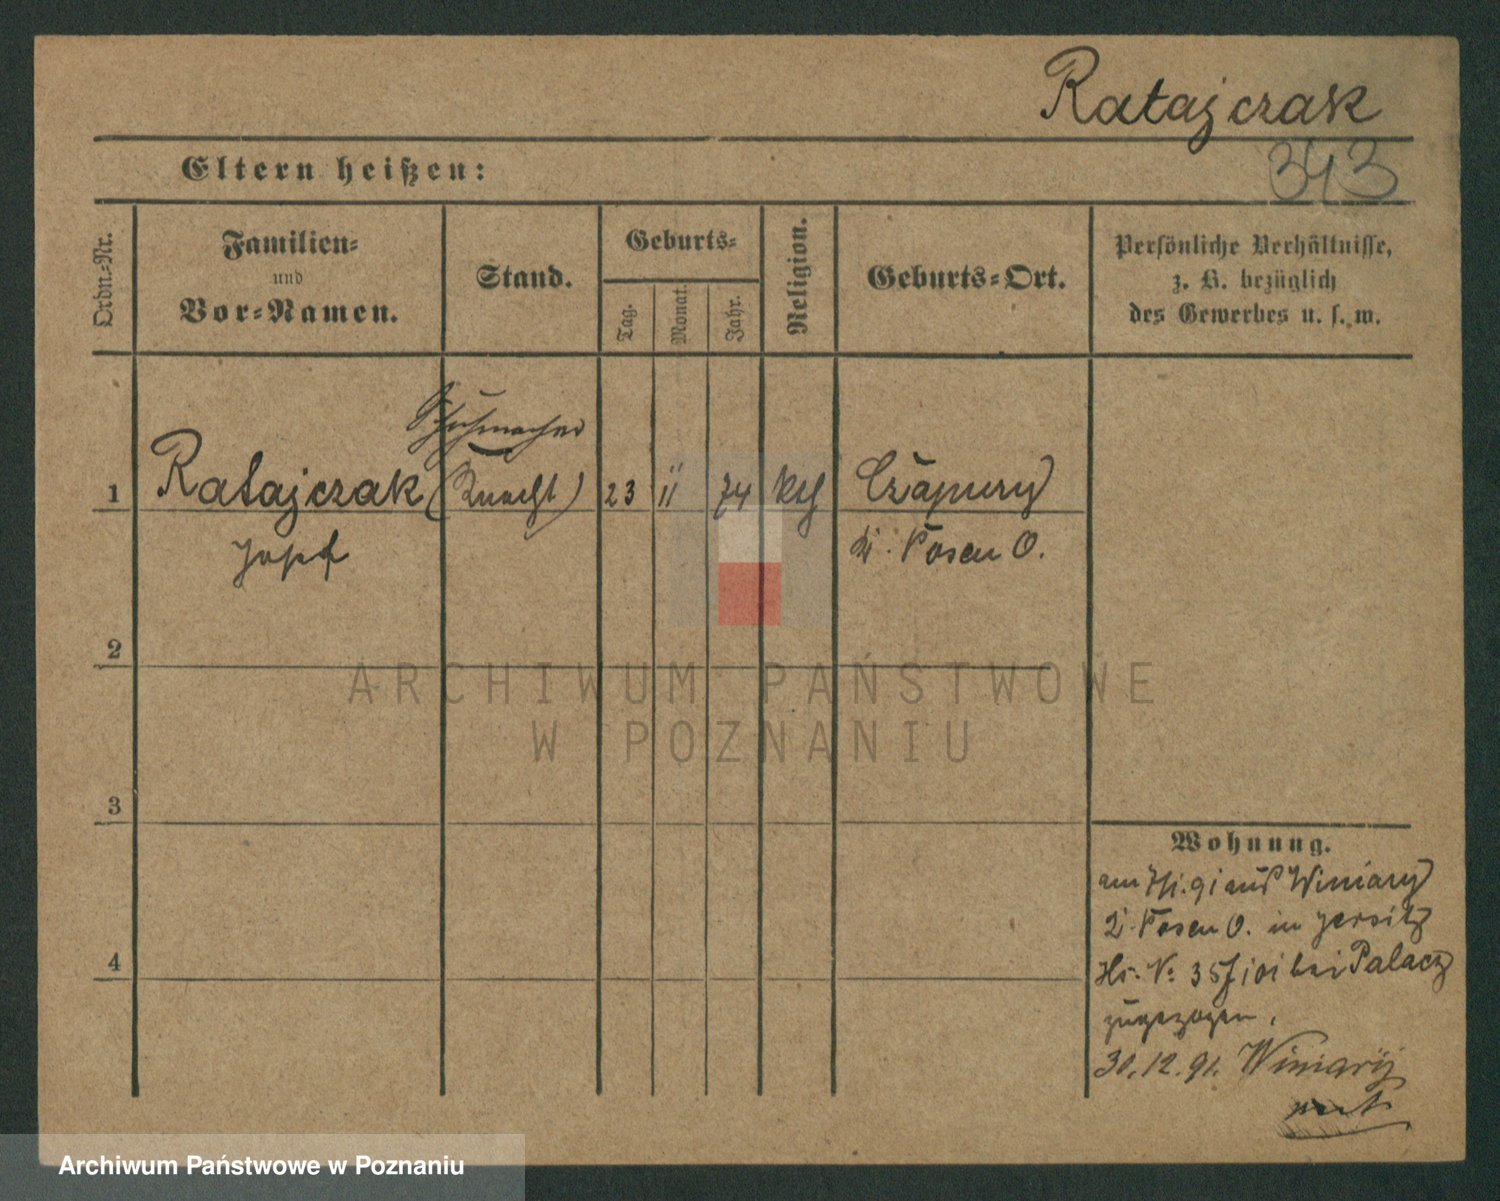 Ratajczak
343
Eltern heißen:
Ordn.-Nr.
Familien-
und
Vor-Namen.
Stand.
Geburts-
Tag.
Monat.
Jahr.
Religion.
Geburts-Ort.
Persönliche Verhältnisse,
z. B. bezüglich
des Gewerbes u. s. w.
Schuhmacher
1 Ratajczak (Knecht) 23 11 74 kth Czapury
Josef Kr. Posen O.
2
ARCHIWUM PAŃSTWOWE
W POZNANIU
3
Wohnung.
am 91 aus Winiary
Kr. Posen O. in Jersitz
Hs. No. 35 bei Palacz
zugezogen.
4
30.12.91. Winiary
Archiwum Państwowe w Poznaniu